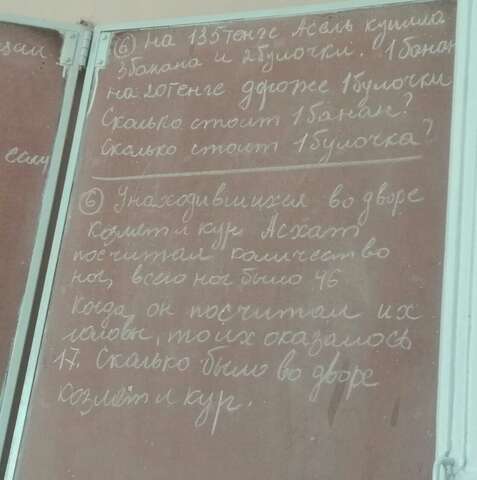 ции
если
⑥ На 135 тенге Асель купила
3 банана и 2 булочки. 1 банан
на 20 тенге дороже 1 булочки
Сколько стоит 1 банан?
Сколько стоит 1 булочка?
⑥ У находившихся во дворе
козлят и кур Асхат
посчитал количество
ног, всего ног было 46
Когда, он посчитал их
головы, то их оказалось
17. Сколько было во дворе
козлят и кур.